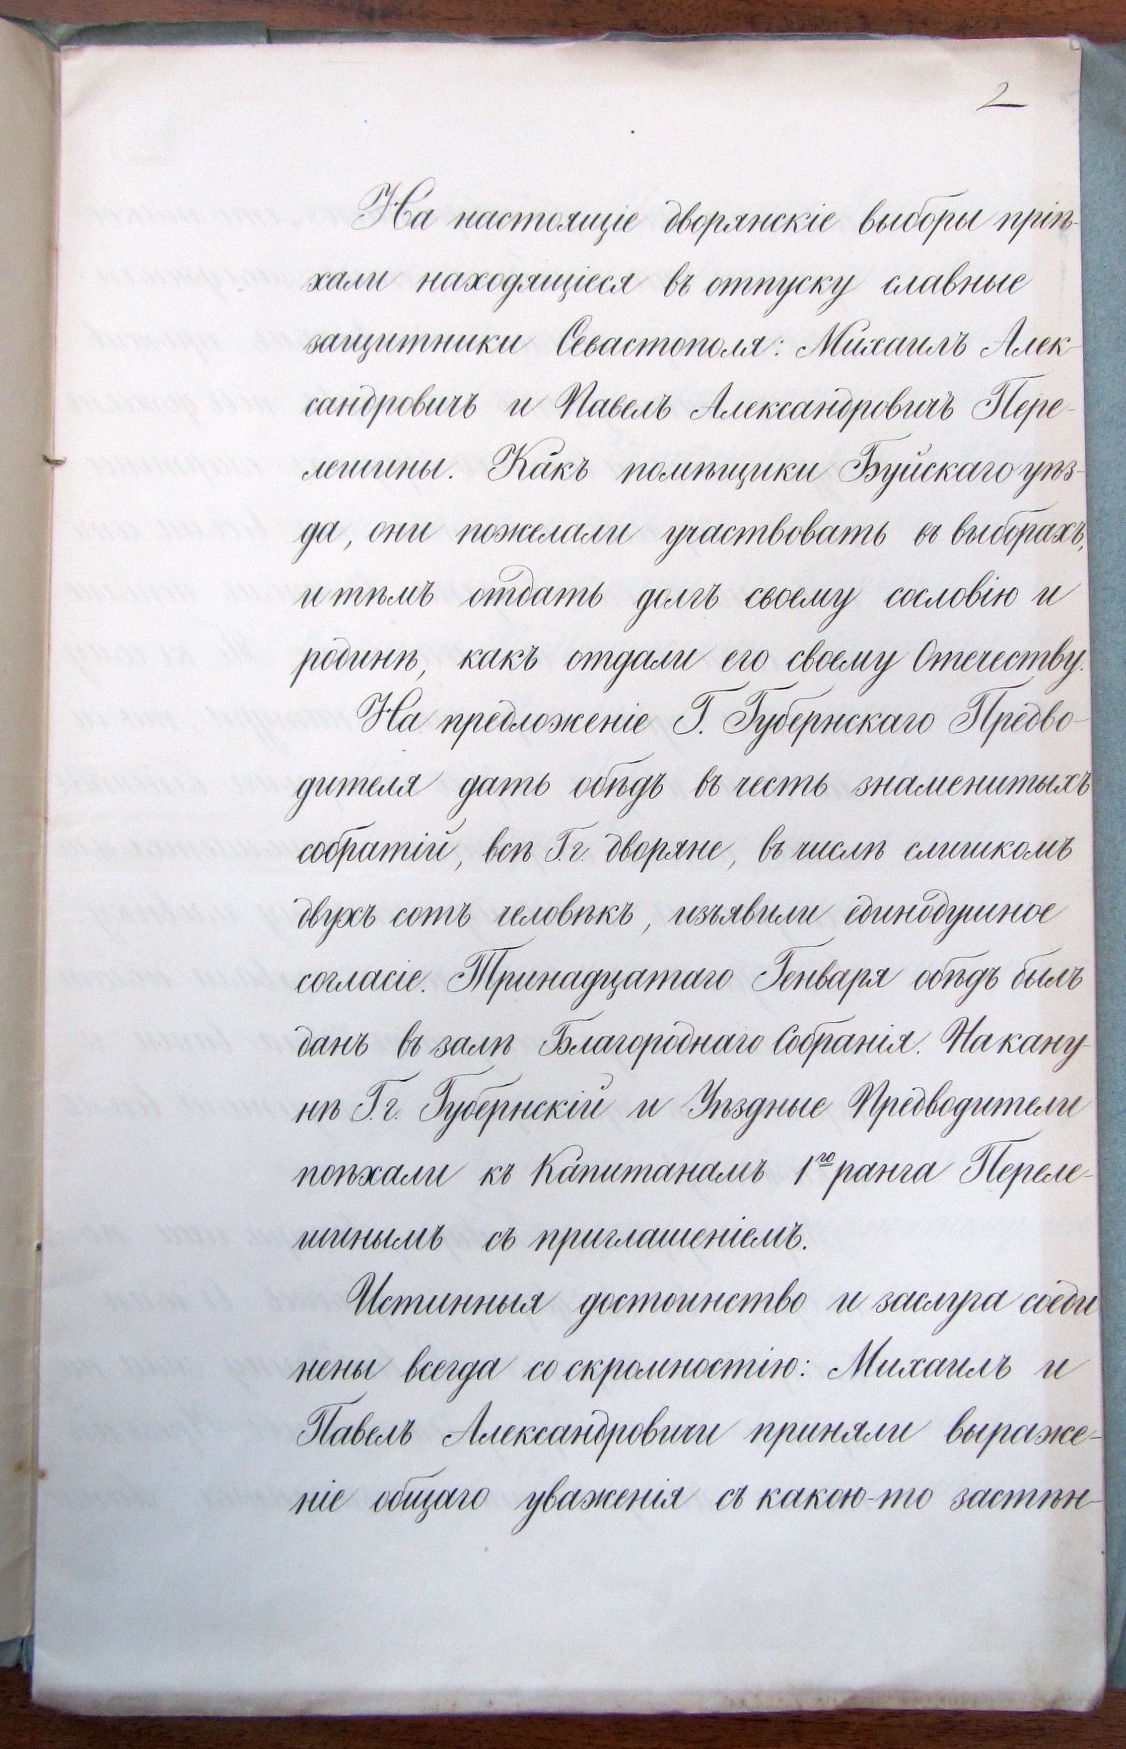 2
На настоящіе дворянскіе выборы пріѣ-
хали находящіеся въ отпуску славные
защитники Севастополя: Михаилъ Алек-
сандровичъ и Павелъ Александровичъ Пере-
лешины. Какъ помѣщики Буйскаго уѣз-
да, они пожелали участвовать въ выборахъ,
и тѣмъ отдать долгъ своему сословію и
родинѣ, какъ отдали его своему Отечеству.
На предложеніе Г. Губернскаго Предво-
дителя дать обѣдъ въ честь знаменитыхъ
собратій, всѣ Гг. дворяне, въ числѣ слишкомъ
двухъ сотъ человѣкъ, изъявили единодушное
согласіе. Тринадцатаго Генваря обѣдъ былъ
данъ въ залѣ Благороднаго Собранія. На кану-
нѣ Г.г. Губернскій и Уѣздные Предводители
поѣхали къ Капитанамъ 1го ранга Переле-
шинымъ съ приглашеніемъ.
Истинныя достоинство и заслуга соеди
нены всегда со скромностію: Михаилъ и
Павелъ Александровичи приняли выраже-
ніе общаго уваженія съ какою-то застѣн-